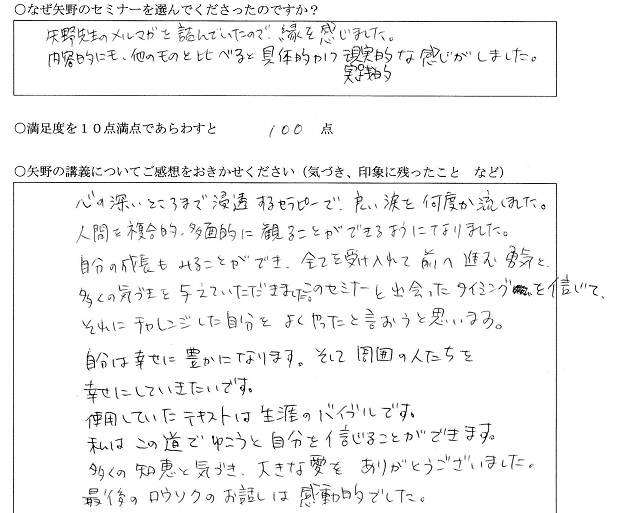 ○なぜ矢野のセミナーを選んでくださったのですか？
矢野先生のメルマガを読んでいたので、縁を感じました。
内容的にも、他のものと比べると具体的かつ現実的な感じがしました。
実践的
○満足度を１０点満点であらわすと 100 点
○矢野の講義についてご感想をおきかせください（気づき、印象に残ったこと など）
心の深いところまで浸透するセラピーで、良い涙を何度か流しました。
人間を複合的、多面的に観ることができるようになりました。
自分の成長もみることができ、全てを受け入れて前へ進む勇気と、
多くの気づきを与えていただきました。このセミナーと出会ったタイミングを信じて、
それにチャレンジした自分をよくやったと言おうと思います。
自分は幸せに豊かになります。そして周囲の人たちを
幸せにしていきたいです。
使用していたテキストは生涯のバイブルです。
私はこの道でゆこうと自分を信じることができます。
多くの知恵と気づき、大きな愛をありがとうございました。
最後のロウソクのお話しは感動的でした。